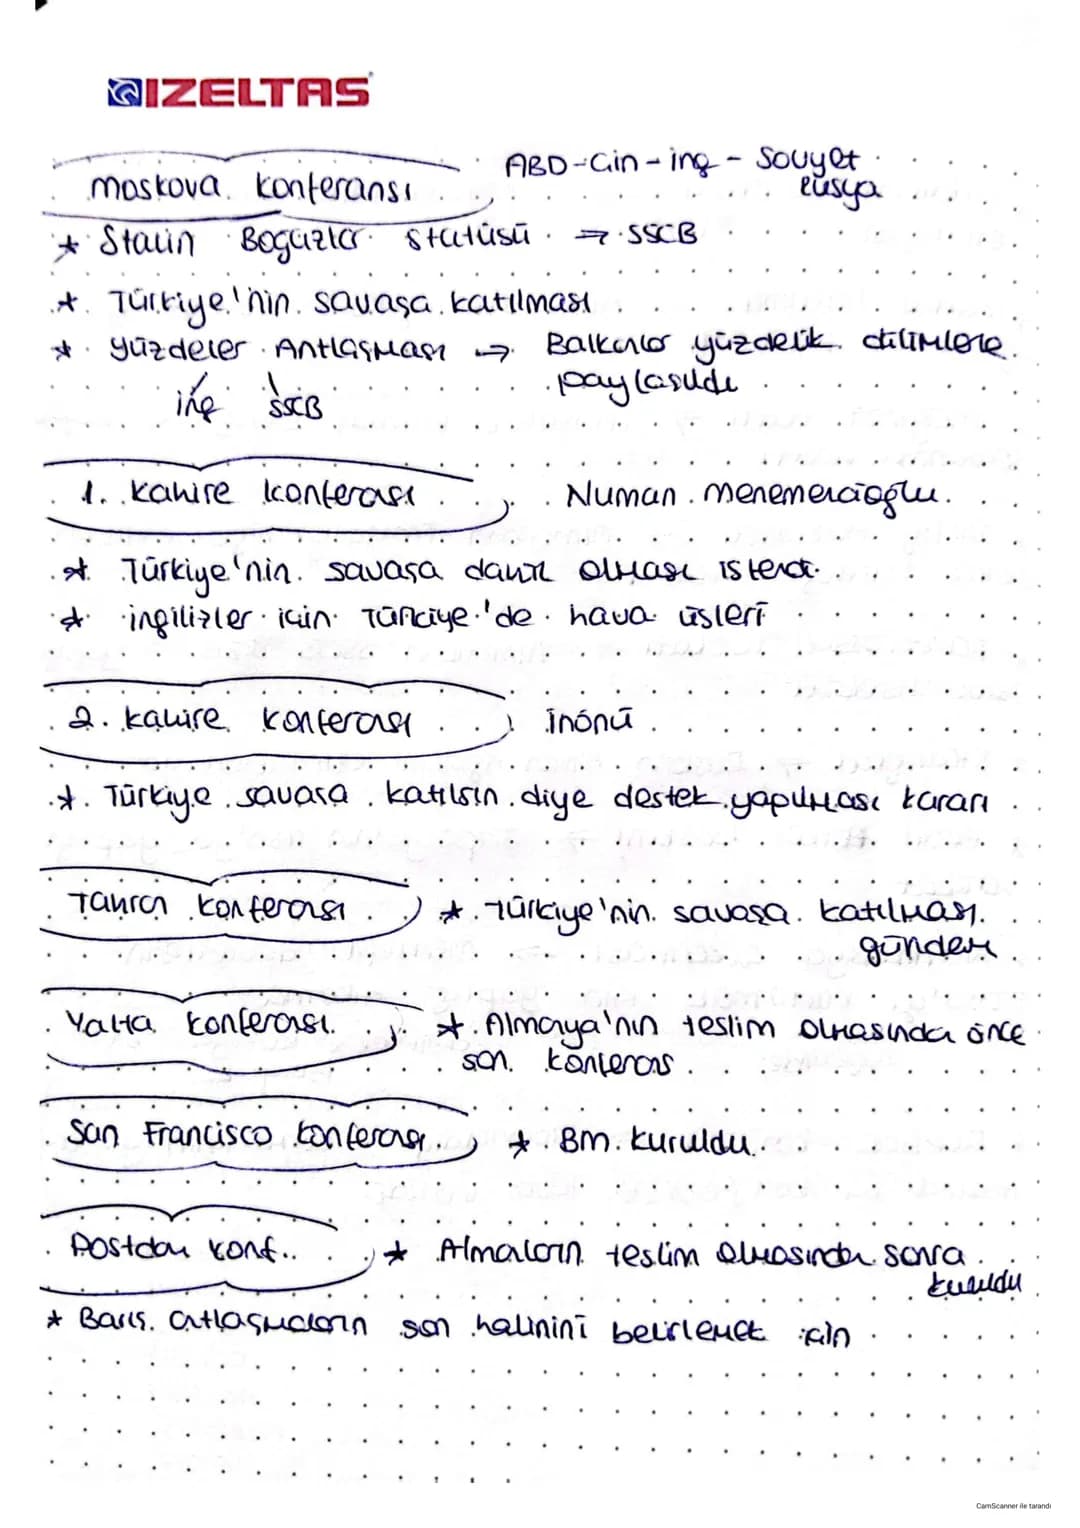 IZELTAS
moskova konferansı ABD-Çin-ing - Souyet
Rusya
* Stalin Boğazlar statüsü → SSCB
* Türkiye'nin savaşa katılması
* yüzdeler Antlaşması → Balkanlar yüzdelik dilimlere
paylaşıldı
ing SSCB
1. kahire konferası Numan menemencioğlu
* Türkiye'nin savaşa dahil olması istendi.
* ingilizler için Türkiye'de hava üsleri
2. kahire konferası inönü
* Türkiye savaşa katılsın diye destek yapılması kararı
Tahran konferansı * Türkiye'nin savaşa katılması
gündem
Yalta konferansı * Almanya'nın teslim olmasından önce
son konferans
San Francisco konferansı * Bm kuruldu.
Postdam konf. * Almaların teslim olmasından sonra
kuruldu
* Barış antlaşmaların son halinini belirlemek için
CamScanner ile tarandı